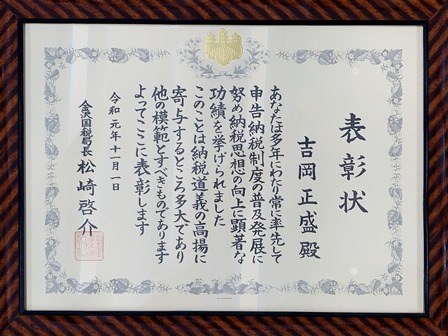 表彰状
吉岡正盛殿
あなたは多年にわたり常に率先して
申告納税制度の普及発展に
努め納税思想の向上に顕著な
功績を挙げられました
このことは納税道義の高揚に
寄与するところ多大であり
他の模範とすべきものであります
よってここに表彰します
令和元年十一月一日
金沢国税局長 松崎啓介